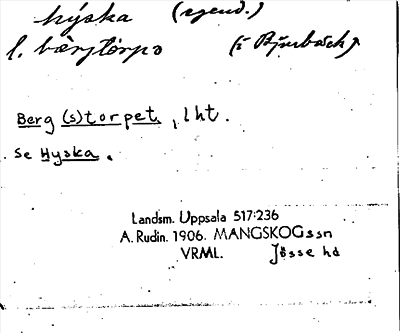 hýska (egend.)
l. bærjtòrpə (i Bjurbäck).
Berg (s)torpet, lht.
Se Hyska.
Landsm. Uppsala 517:236
A. Rudin. 1906. MANGSKOG ssn
VRML. Jösse hd